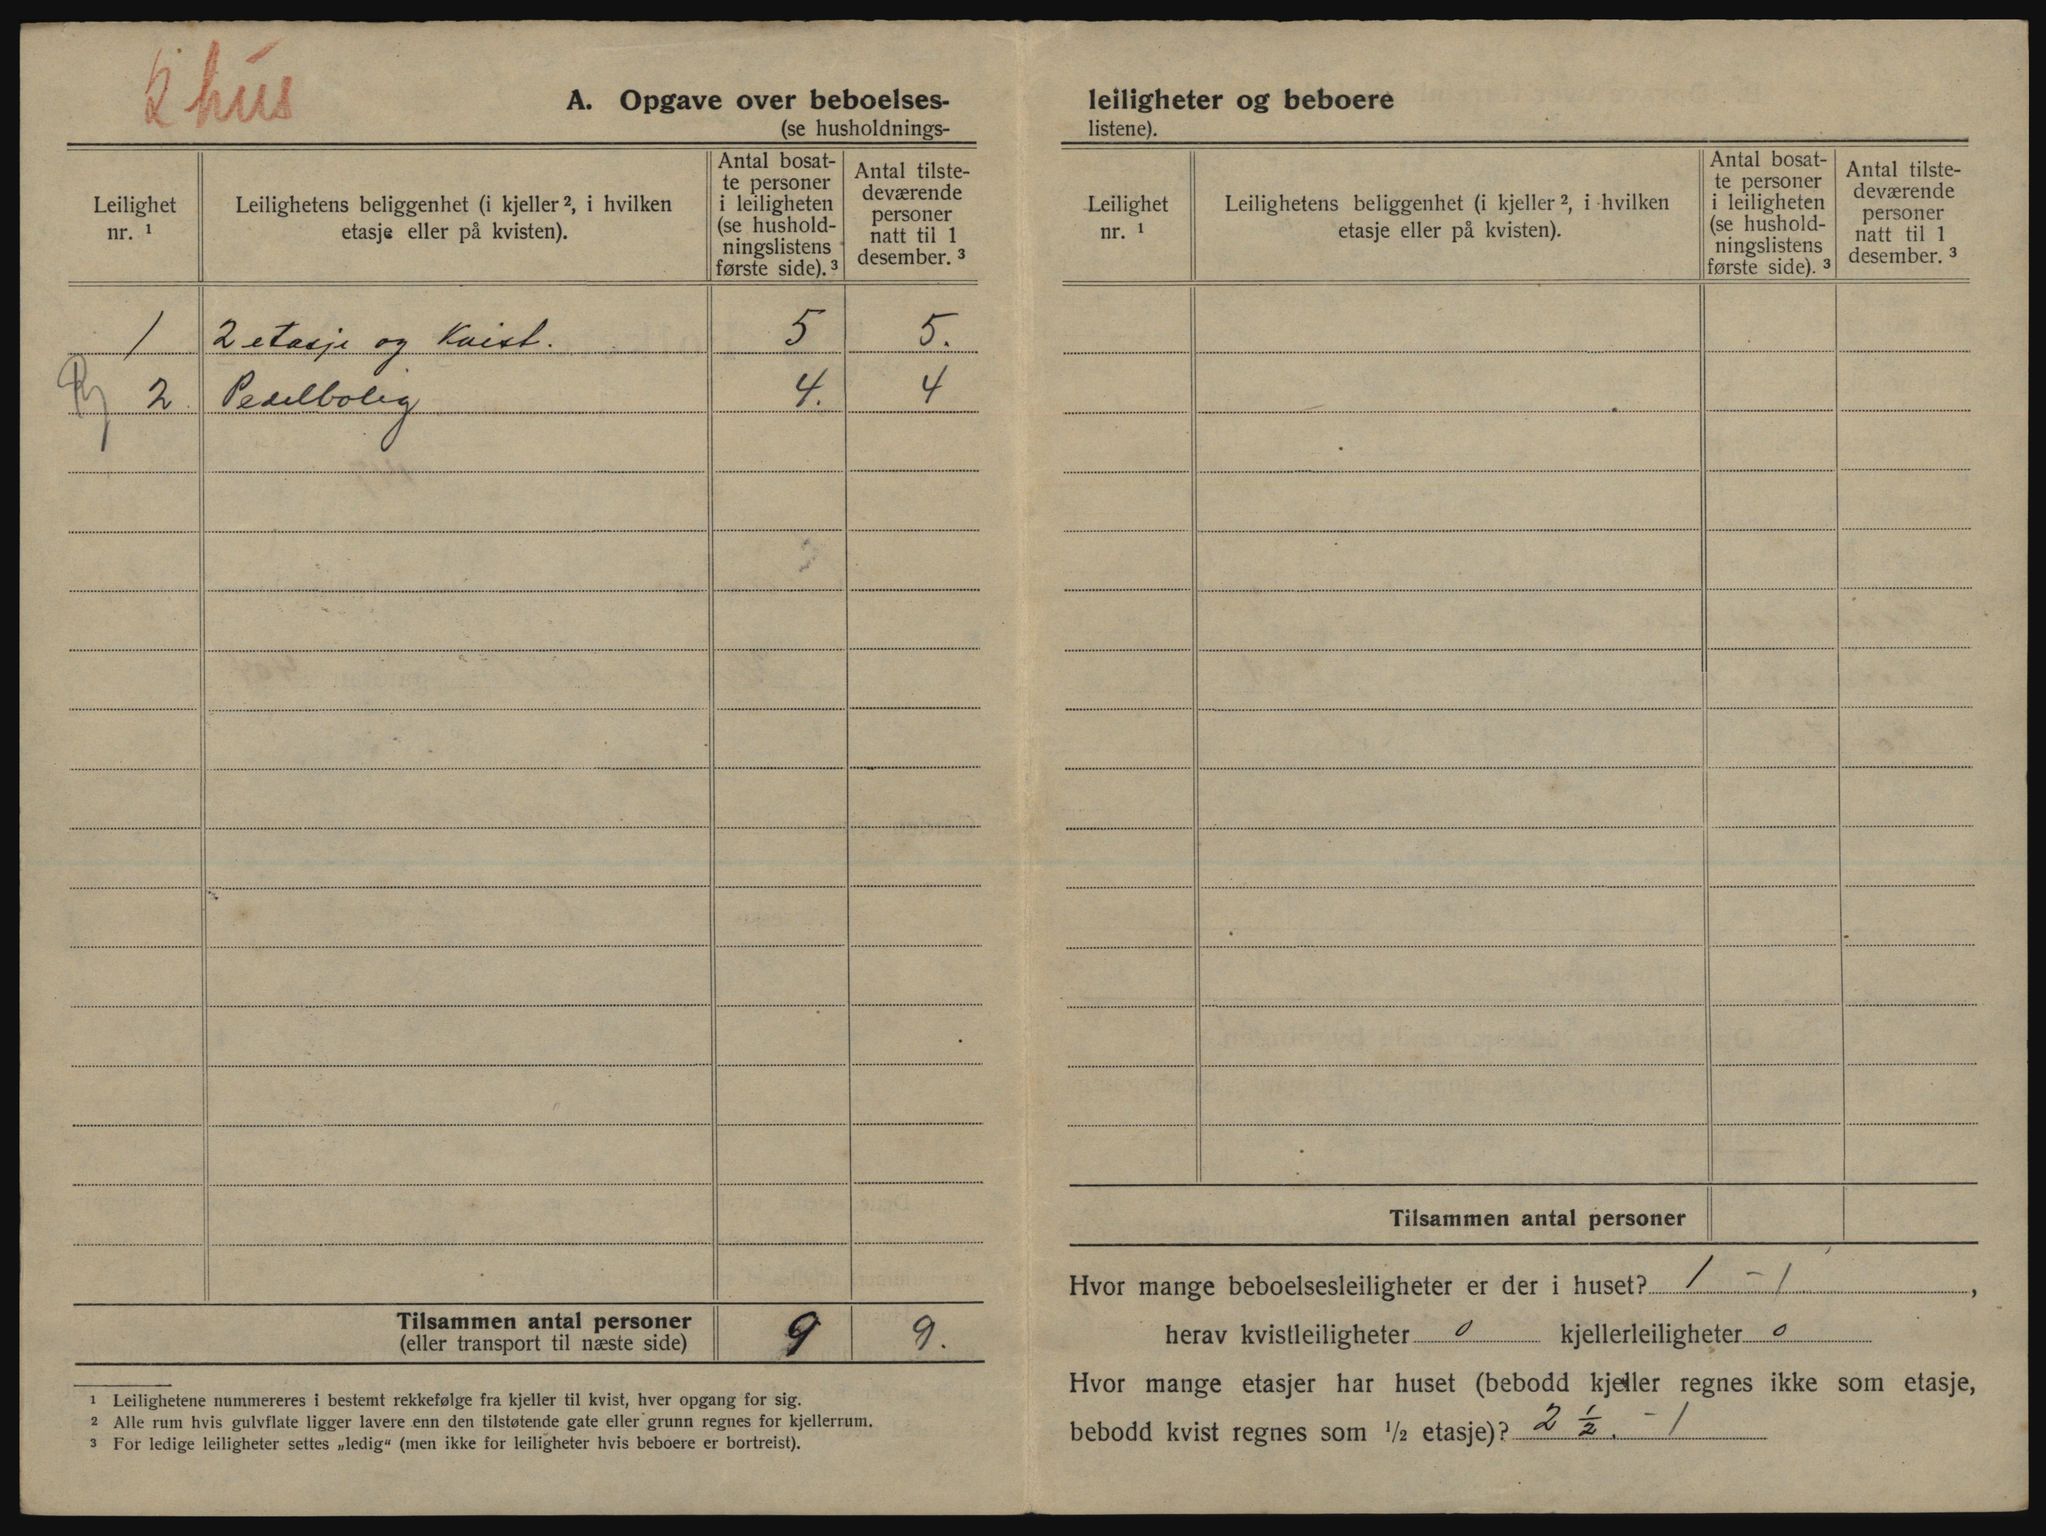 2 hus
A. Opgave over beboelses-
(se husholdnings-
Leilighet nr. ¹
Leilighetens beliggenhet (i kjeller ², i hvilken etasje eller på kvisten).
Antal bosat-
te personer
i leiligheten
(se hushold-
ningslistens
første side). ³
Antal tilste-
deværende
personer
natt til 1
desember. ³
1 2 etasje og Kvist. 5 5.
2 Pedelbolig 4. 4
Tilsammen antal personer 9 9.
(eller transport til næste side)
¹ Leilighetene nummereres i bestemt rekkefølge fra kjeller til kvist, hver opgang for sig.
² Alle rum hvis gulvflate ligger lavere enn den tilstøtende gate eller grunn regnes for kjellerrum.
³ For ledige leiligheter settes „ledig“ (men ikke for leiligheter hvis beboere er bortreist).
leiligheter og beboere
listene).
Leilighet nr. ¹
Leilighetens beliggenhet (i kjeller ², i hvilken etasje eller på kvisten).
Antal bosat-
te personer
i leiligheten
(se hushold-
ningslistens
første side). ³
Antal tilste-
deværende
personer
natt til 1
desember. ³
Tilsammen antal personer
Hvor mange beboelsesleiligheter er der i huset? 1 – 1,
herav kvistleiligheter 0 kjellerleiligheter 0
Hvor mange etasjer har huset (bebodd kjeller regnes ikke som etasje,
bebodd kvist regnes som ½ etasje)? 2 ½. – 1